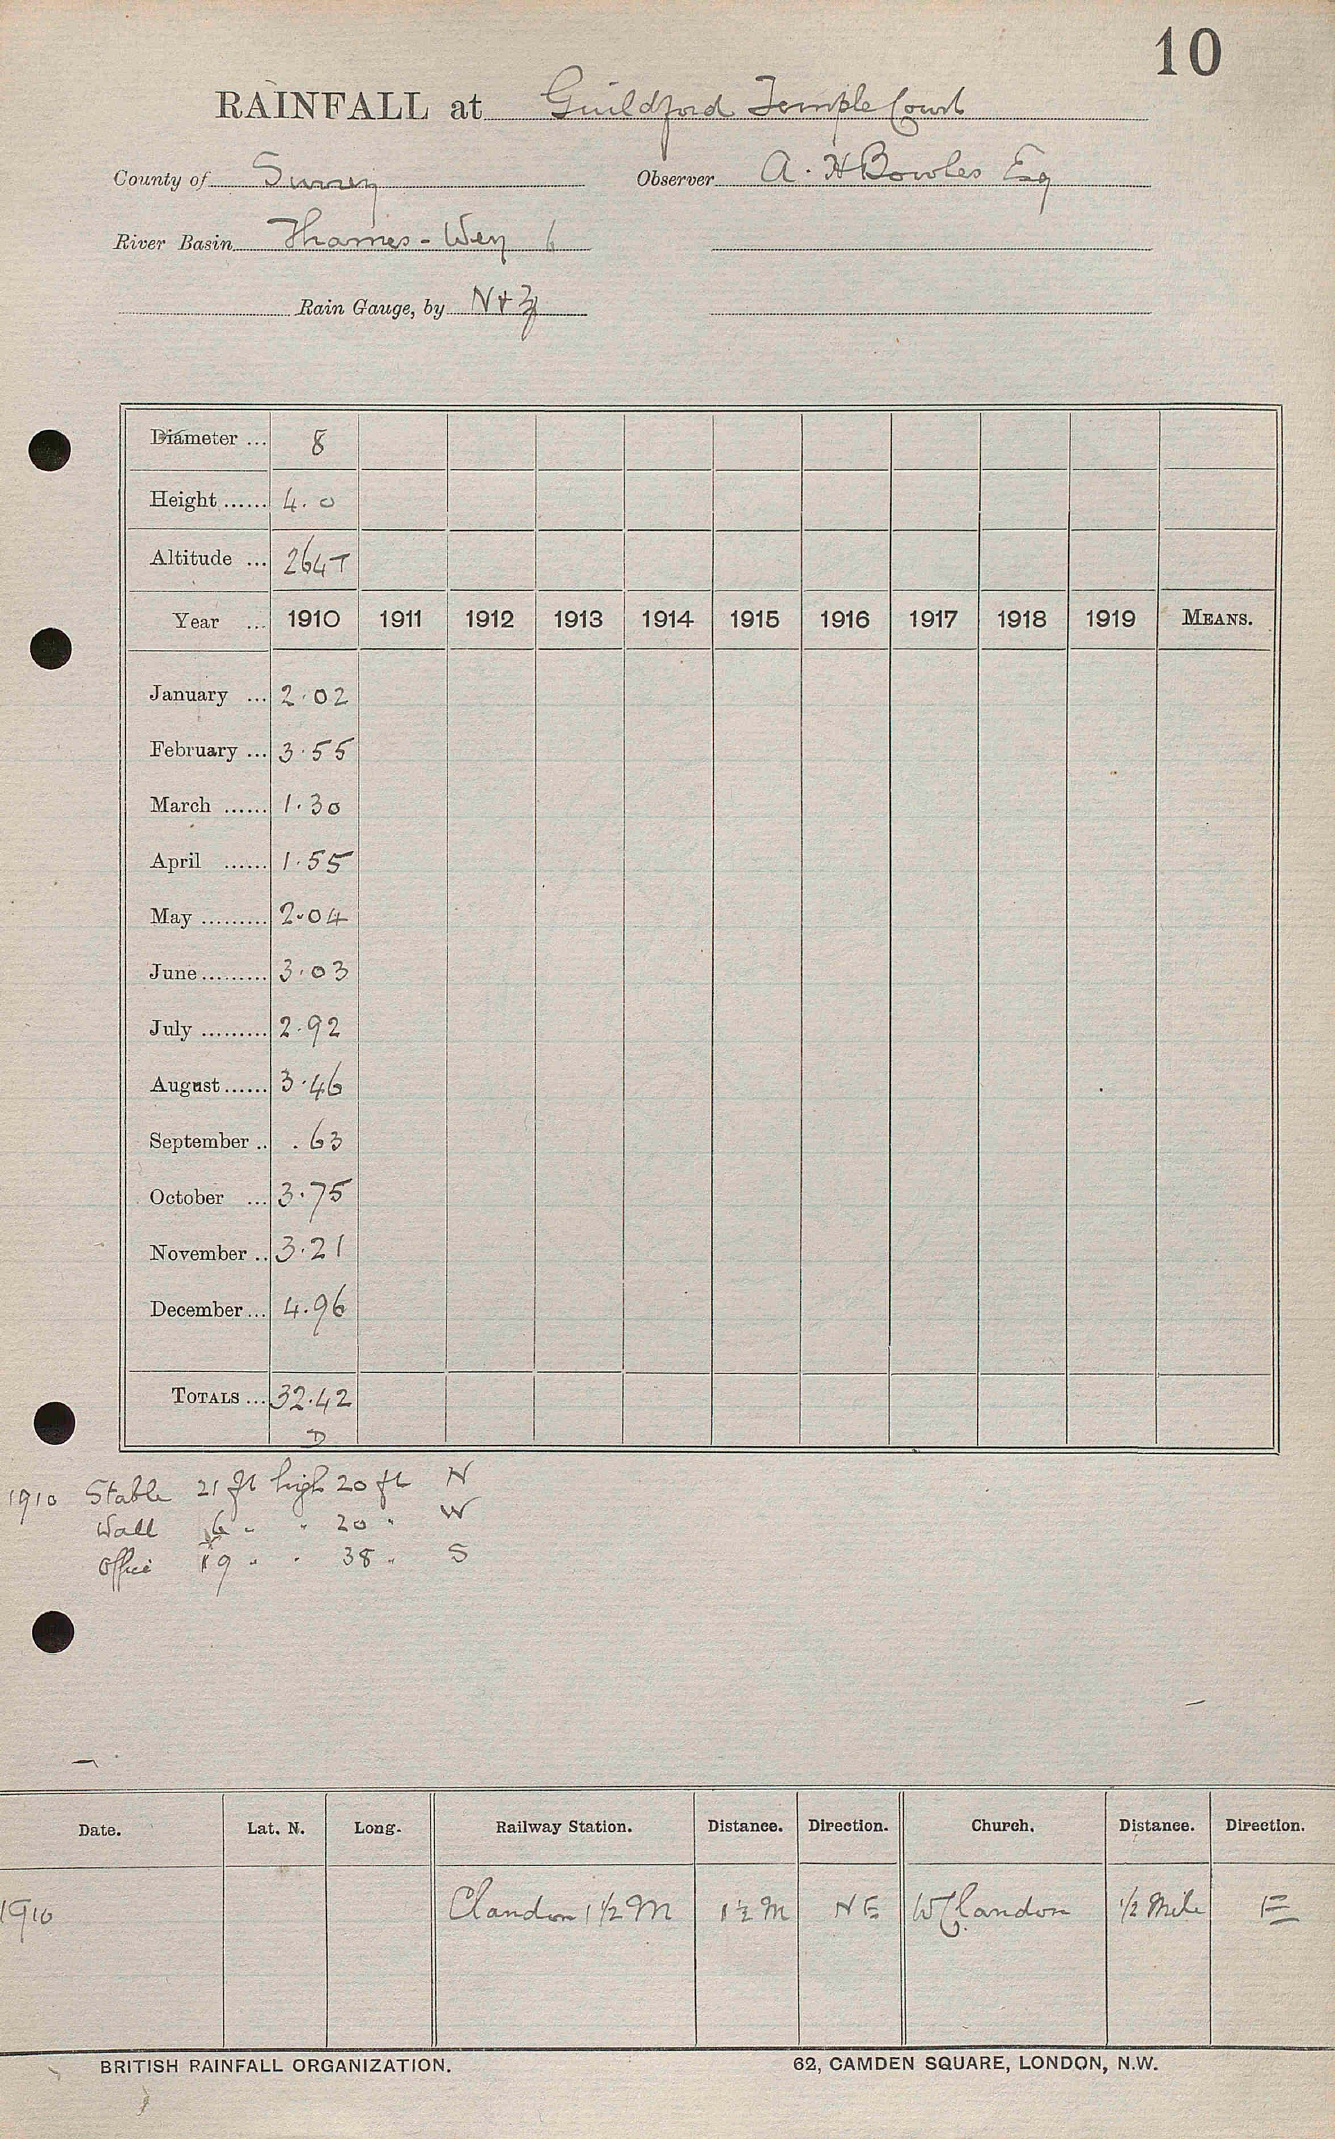 10
RAINFALL at Guildford Temple Court
County of Surrey Observer A. H Bowles Esq
River Basin Thames - Wey 6
Rain Gauge, by N + Z
Diameter ... 8
Height ...... 4.0
Altitude ... 264 T
Year ... 1910 1911 1912 1913 1914 1915 1916 1917 1918 1919 MEANS.
January ... 2.02
February ... 3.55
March ...... 1.30
April ...... 1.55
May ......... 2.04
June ......... 3.03
July ......... 2.92
August ...... 3.46
September .. .63
October ... 3.75
November .. 3.21
December ... 4.96
TOTALS ... 32.42
D
1910 Stable 21 ft high 20 ft N
Wall 6 " " 20 " W
Office 19 " " 38 " S
Date. Lat. N. Long. Railway Station. Distance. Direction. Church. Distance. Direction.
1910 Clandon 1 1/2 M 1 1/2 M NE W Clandon 1/2 Mile E
BRITISH RAINFALL ORGANIZATION. 62, CAMDEN SQUARE, LONDON, N.W.